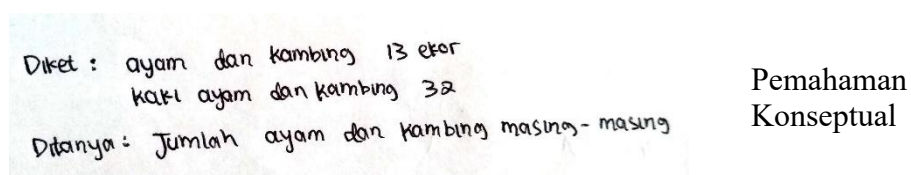 Diket : ayam dan kambing 13 ekor
kaki ayam dan kambing 32
Ditanya : Jumlah ayam dan kambing masing-masing
Pemahaman
Konseptual